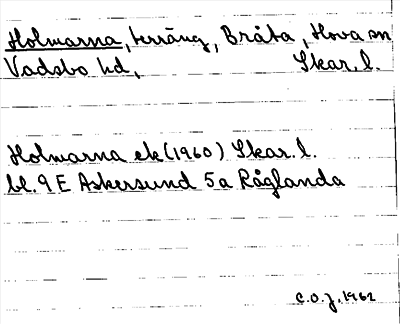 Holmarna, terräng, Bråta, Hova sn
Vadsbo hd, Skar. l.
Holmarna ek (1960) Skar. l.
bl. 9 E Askersund 5a Råglanda
C.O.J. 1962